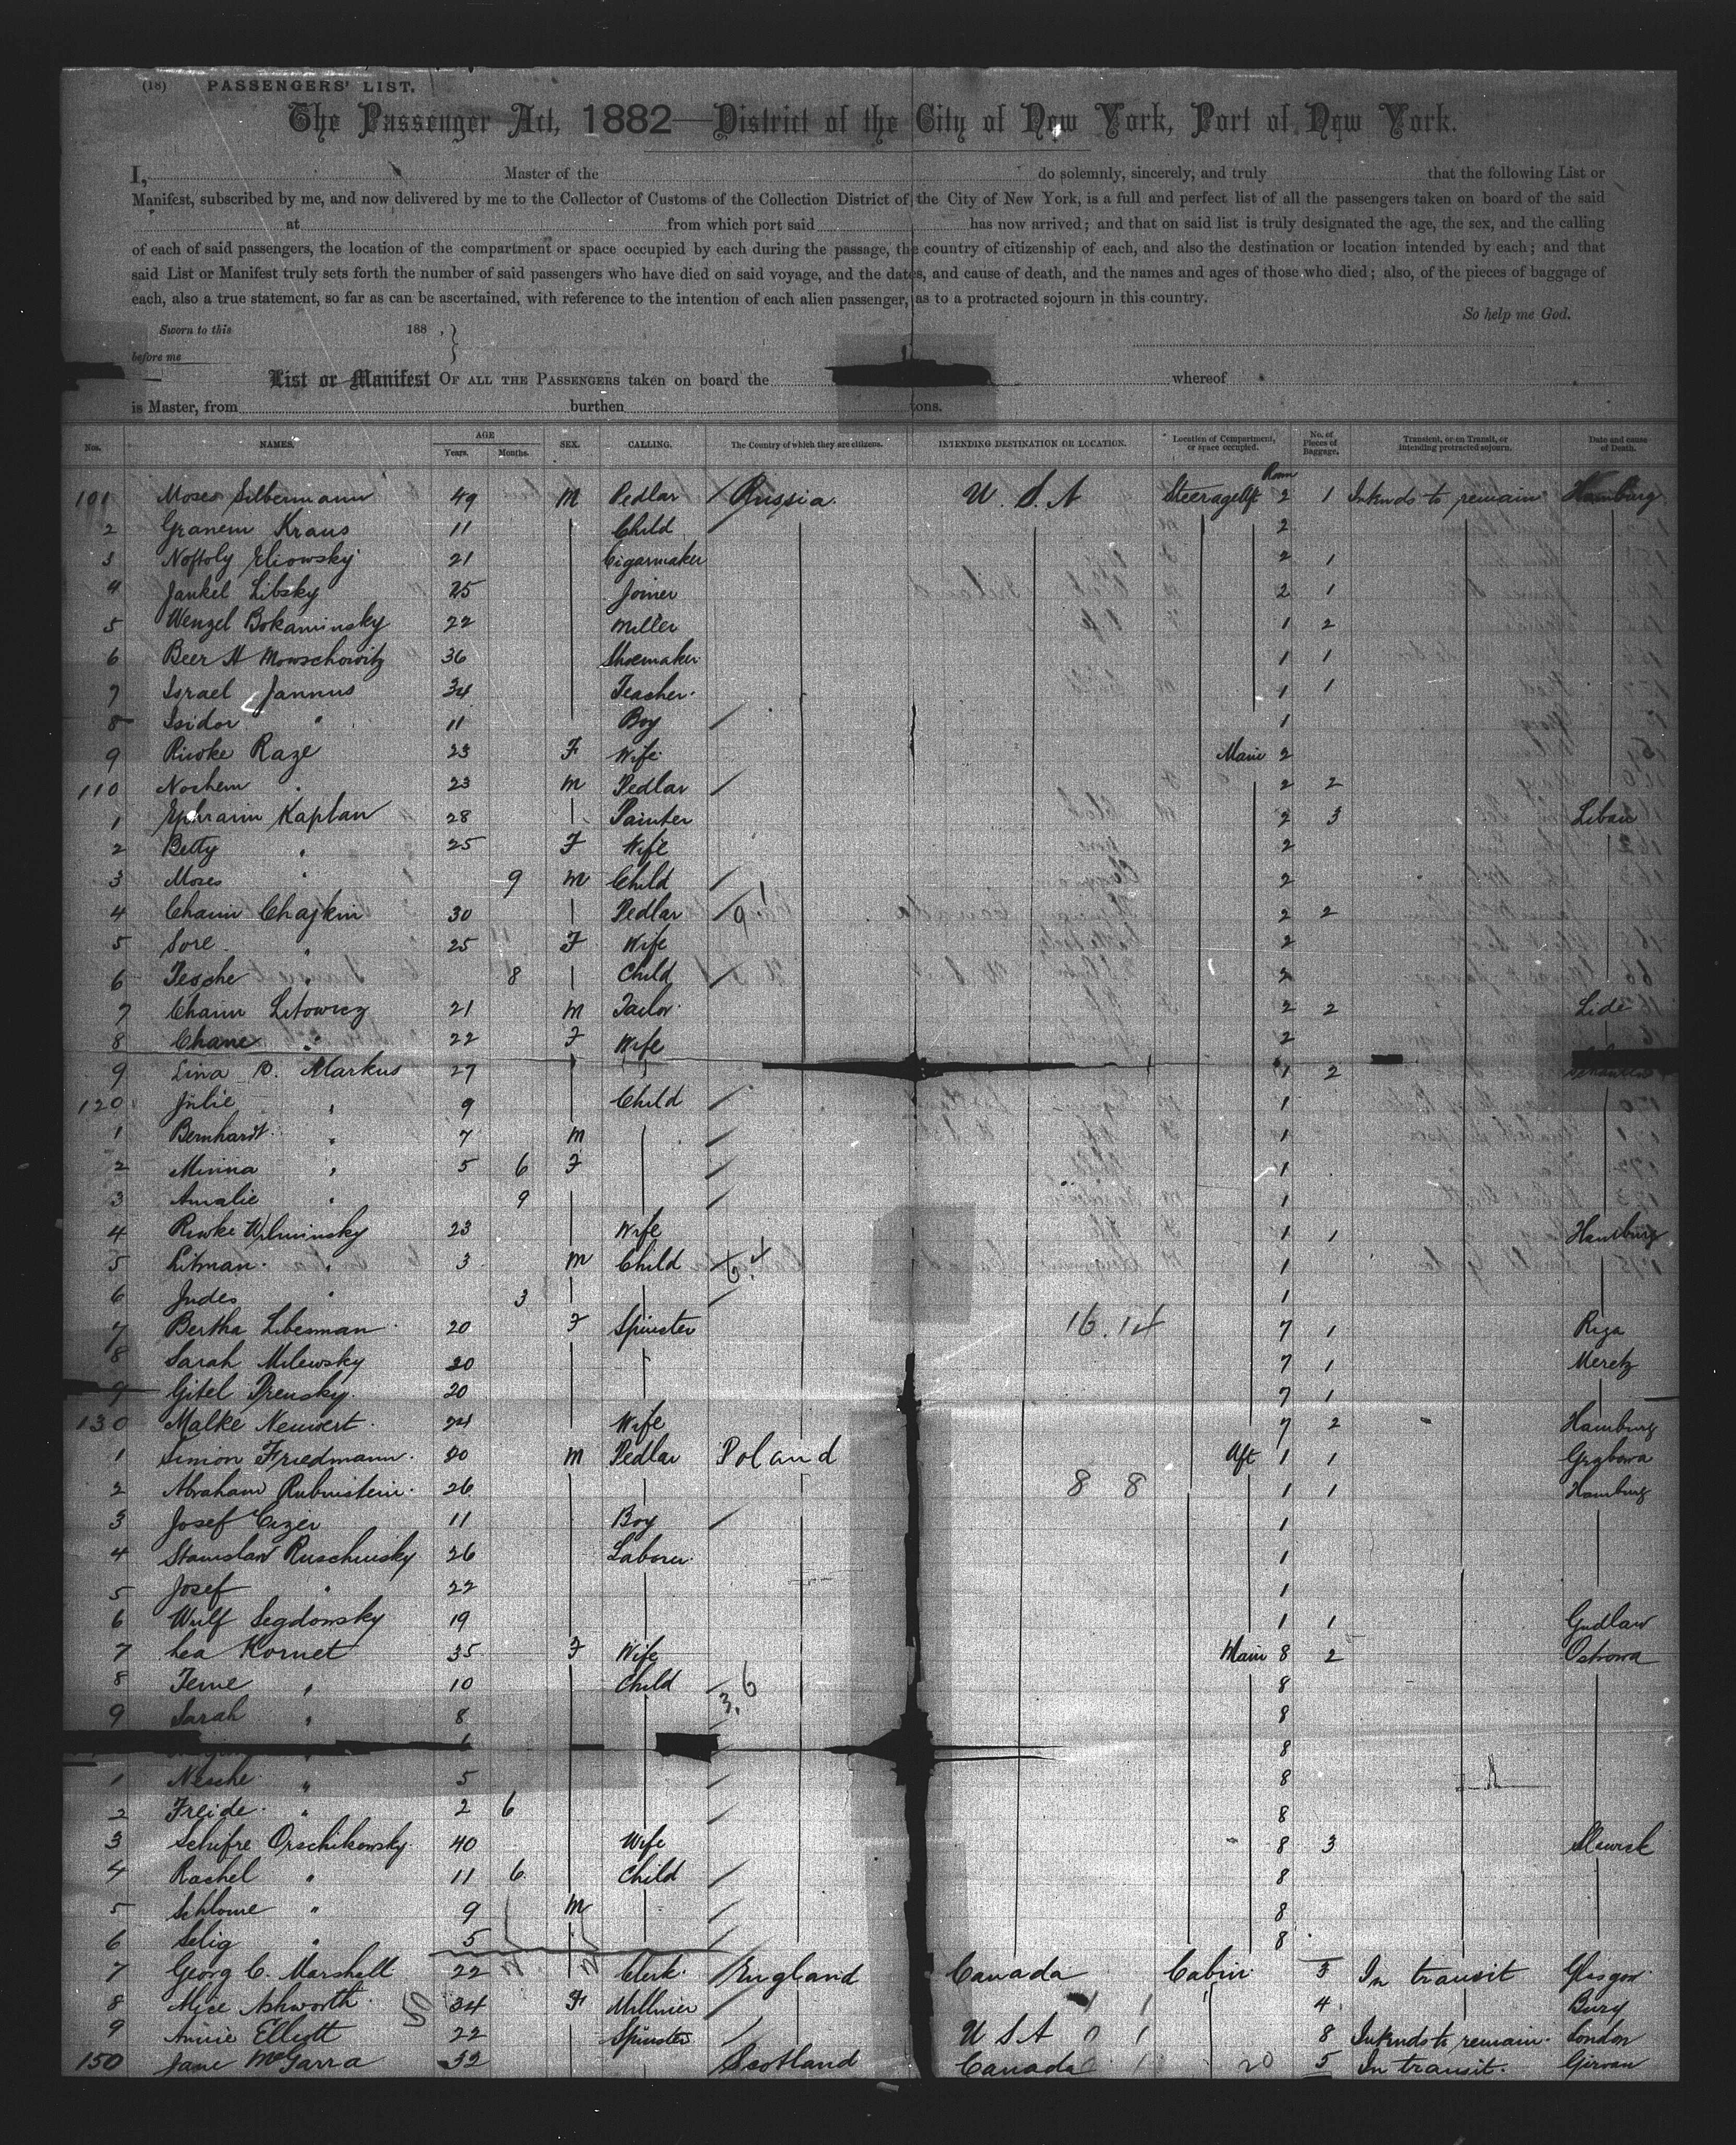 (18) PASSENGERS' LIST.
The Passenger Act, 1882—District of the City of New York, Port of New York.
I, Master of the do solemnly, sincerely, and truly that the following List or
Manifest, subscribed by me, and now delivered by me to the Collector of Customs of the Collection District of the City of New York, is a full and perfect list of all the passengers taken on board of the said
at from which port said has now arrived; and that on said list is truly designated the age, the sex, and the calling
of each of said passengers, the location of the compartment or space occupied by each during the passage, the country of citizenship of each, and also the destination or location intended by each; and that
said List or Manifest truly sets forth the number of said passengers who have died on said voyage, and the dates, and cause of death, and the names and ages of those who died; also, of the pieces of baggage of
each, also a true statement, so far as can be ascertained, with reference to the intention of each alien passenger, as to a protracted sojourn in this country.
So help me God.
Sworn to this 188 ,
before me
List or Manifest OF ALL THE PASSENGERS taken on board the whereof
is Master, from burthen tons.
No. NAMES. AGE Years. Months. SEX. CALLING. The Country of which they are citizens. INTENDING DESTINATION OR LOCATION. Location of Compartment, or space occupied. No. of Pieces of Baggage. Transient, or en Transit, or intending protracted sojourn. Date and cause of Death.
Room
101 Moses Silbermann 49 M Pedlar / Russia. U. S. A Steerage Aft 2 1 Intends to remain Hamburg
2 Granem Kraus 11 Child / 2
3 Noftoly Eliowsky 21 Cigarmaker 2 1
4 Jankel Libsky 25 Joiner 2 1
5 Wenzel Bokaminsky 22 Miller 1 2
6 Beer H Mowschowitz 36 Shoemaker 1 1
7 Israel Jannus 34 Teacher 1 1
8 Isidor " 11 Boy / 1
9 Riwke Raze 23 F Wife Main 2
110 Nochem " 23 M Pedlar / 2 2
1 Ephraim Kaplan 28 Painter 2 3 Libau
2 Betty " 25 F Wife 2
3 Moses " 9 M Child / 2
4 Chaim Chajkin 30 Pedlar / 9 1 2 2
5 Sore " 25 F Wife 2
6 Pesche " 8 Child / 2
7 Chaim Litowicz 21 M Tailor 2 2 Lide
8 Chane " 22 F Wife 2
9 Lina B. Markus 27 " 1 2
120 Julie " 9 Child / 1
1 Bernhardt " 7 M / 1
2 Minna " 5 6 F / 1
3 Amalie " 9 / 1
4 Riwke Wilminsky 23 Wife 1 1 Hamburg
5 Litman " 3 M Child / 6.4 1
6 Judes " 3 / 1
7 Bertha Libesman 20 F Spinster 16.14 7 1 Riga
8 Sarah Milewsky 20 7 1 Meretz
9 Gitel Prensky 20 7 1
130 Malke Neuwert 24 Wife 7 2 Hamburg
1 Simon Friedmann 20 M Pedlar Poland Aft 1 1 Grybowa
2 Abraham Rubinstein 26 8 8 1 1 Hamburg
3 Josef Cizer 11 Boy / 1
4 Stanislaw Ruschinsky 26 Laborer 1
5 Josef " 22 1
6 Wulf Segdowsky 19 1 1 Gudlaw
7 Lea Kornet 35 F Wife Main 8 2 Ostrowa
8 Teme " 10 Child / 3,6 8
9 Sarah " 8 8
" 6 / 8
1 Nesche " 5 / 8
2 Freide " 2 6 / 8
3 Schifre Orschikowsky 40 Wife 8 3 Slawsk
4 Rachel " 11 6 Child / 8
5 Schlome " 9 M / 8
6 Selig " 5 / 8
7 Georg C. Marshall 22 Clerk / England Canada Cabin 3 In transit Glasgow
8 Alice Ashworth 34 F Milliner / 1 1 4 Bury
9 Annie Elliott 22 Spinster / U S A 0 1 8 Intends to remain London
150 Jane McGarra 32 Scotland Canada 1 20 5 In transit. Girvan
50